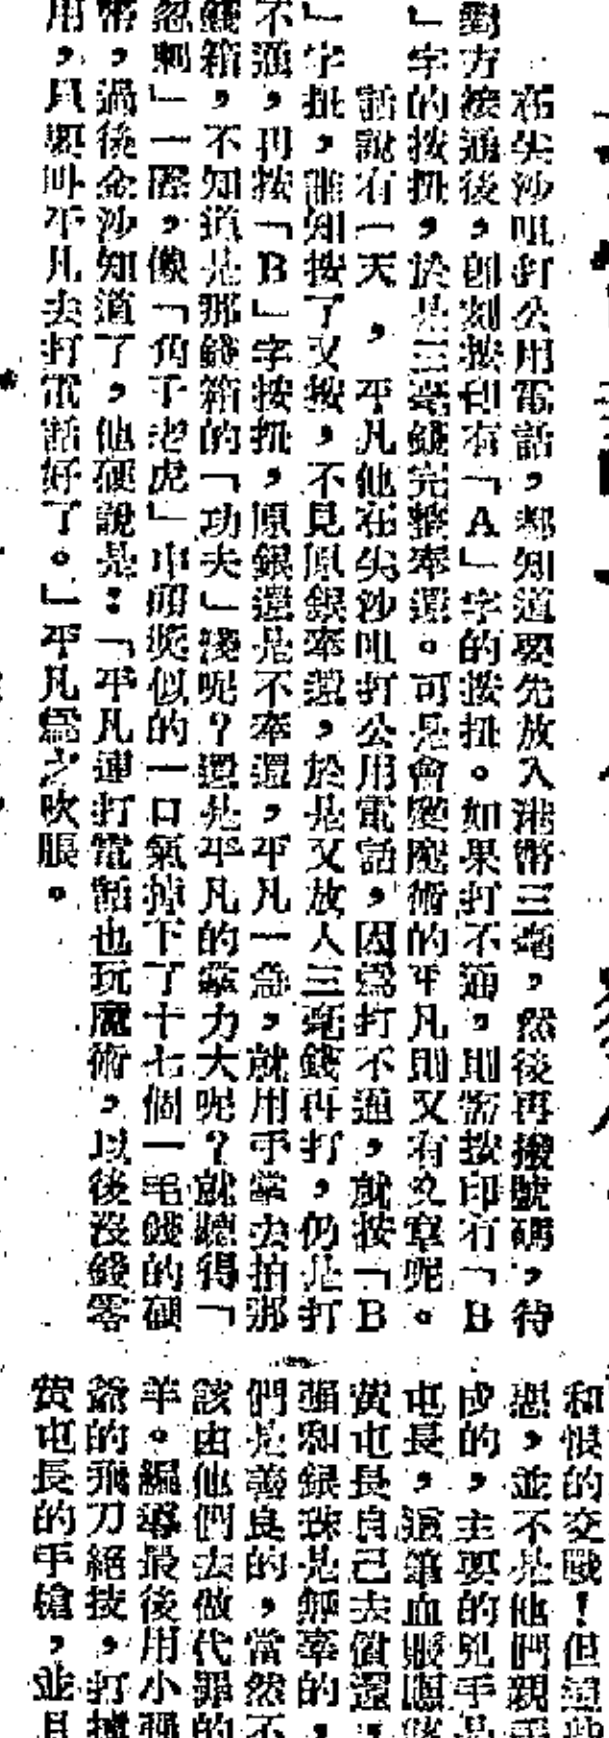 在尖沙咀打公用電話，都知道要先放入港幣三毫，然後再撥號碼，待
對方接通後，卽刻按印有「A」字的按扭。如果打不通，則需按印有「B
」字的按扭，於是三毫錢完整奉還。可是會變魔術的平凡則又有文章呢。
話說有一天，平凡他在尖沙咀打公用電話，因爲打不通，就按「B
」字扭，誰知按了又按，不見原銀奉還，於是又放入三毫錢再打，仍是打
不通，再按「B」字按扭，原銀還是不奉還，平凡一急，就用手掌去拍那
錢箱，不知道是那錢箱的「功夫」淺呢？還是平凡的掌力大呢？就聽得「
忽喇」一聲，像「角子老虎」中頭獎似的一口氣掉下了十七個一毛錢的硬
幣，過後金沙知道了，他硬說是：「平凡連打電話也玩魔術，以後沒錢零
用，只要叫平凡去打電話好了。」平凡爲之吹脹。
和恨的交戰！但這
想，並不是他們親手
成的，主要的兇手是
屯長，這筆血賬應
黄屯長自己去償還，
和銀珠是無辜的，
們是善良的，當然不
該由他們去做代罪的
羊。編導最後用小
爺的飛刀絕技，打
黄屯長的手槍，並且